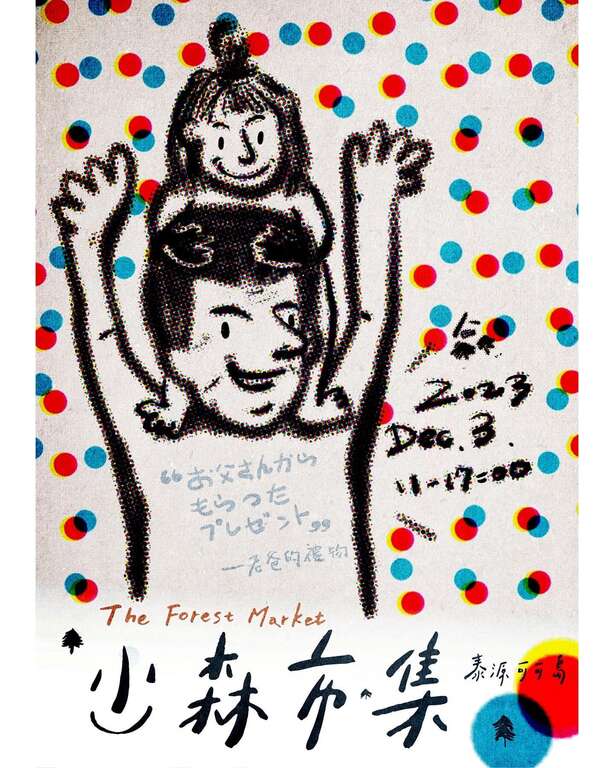 2023
Dec. 3.
11-17:00
“お父さんから
もらった
プレゼント”
—老爸的禮物
The Forest Market
小森市集
泰源可可島